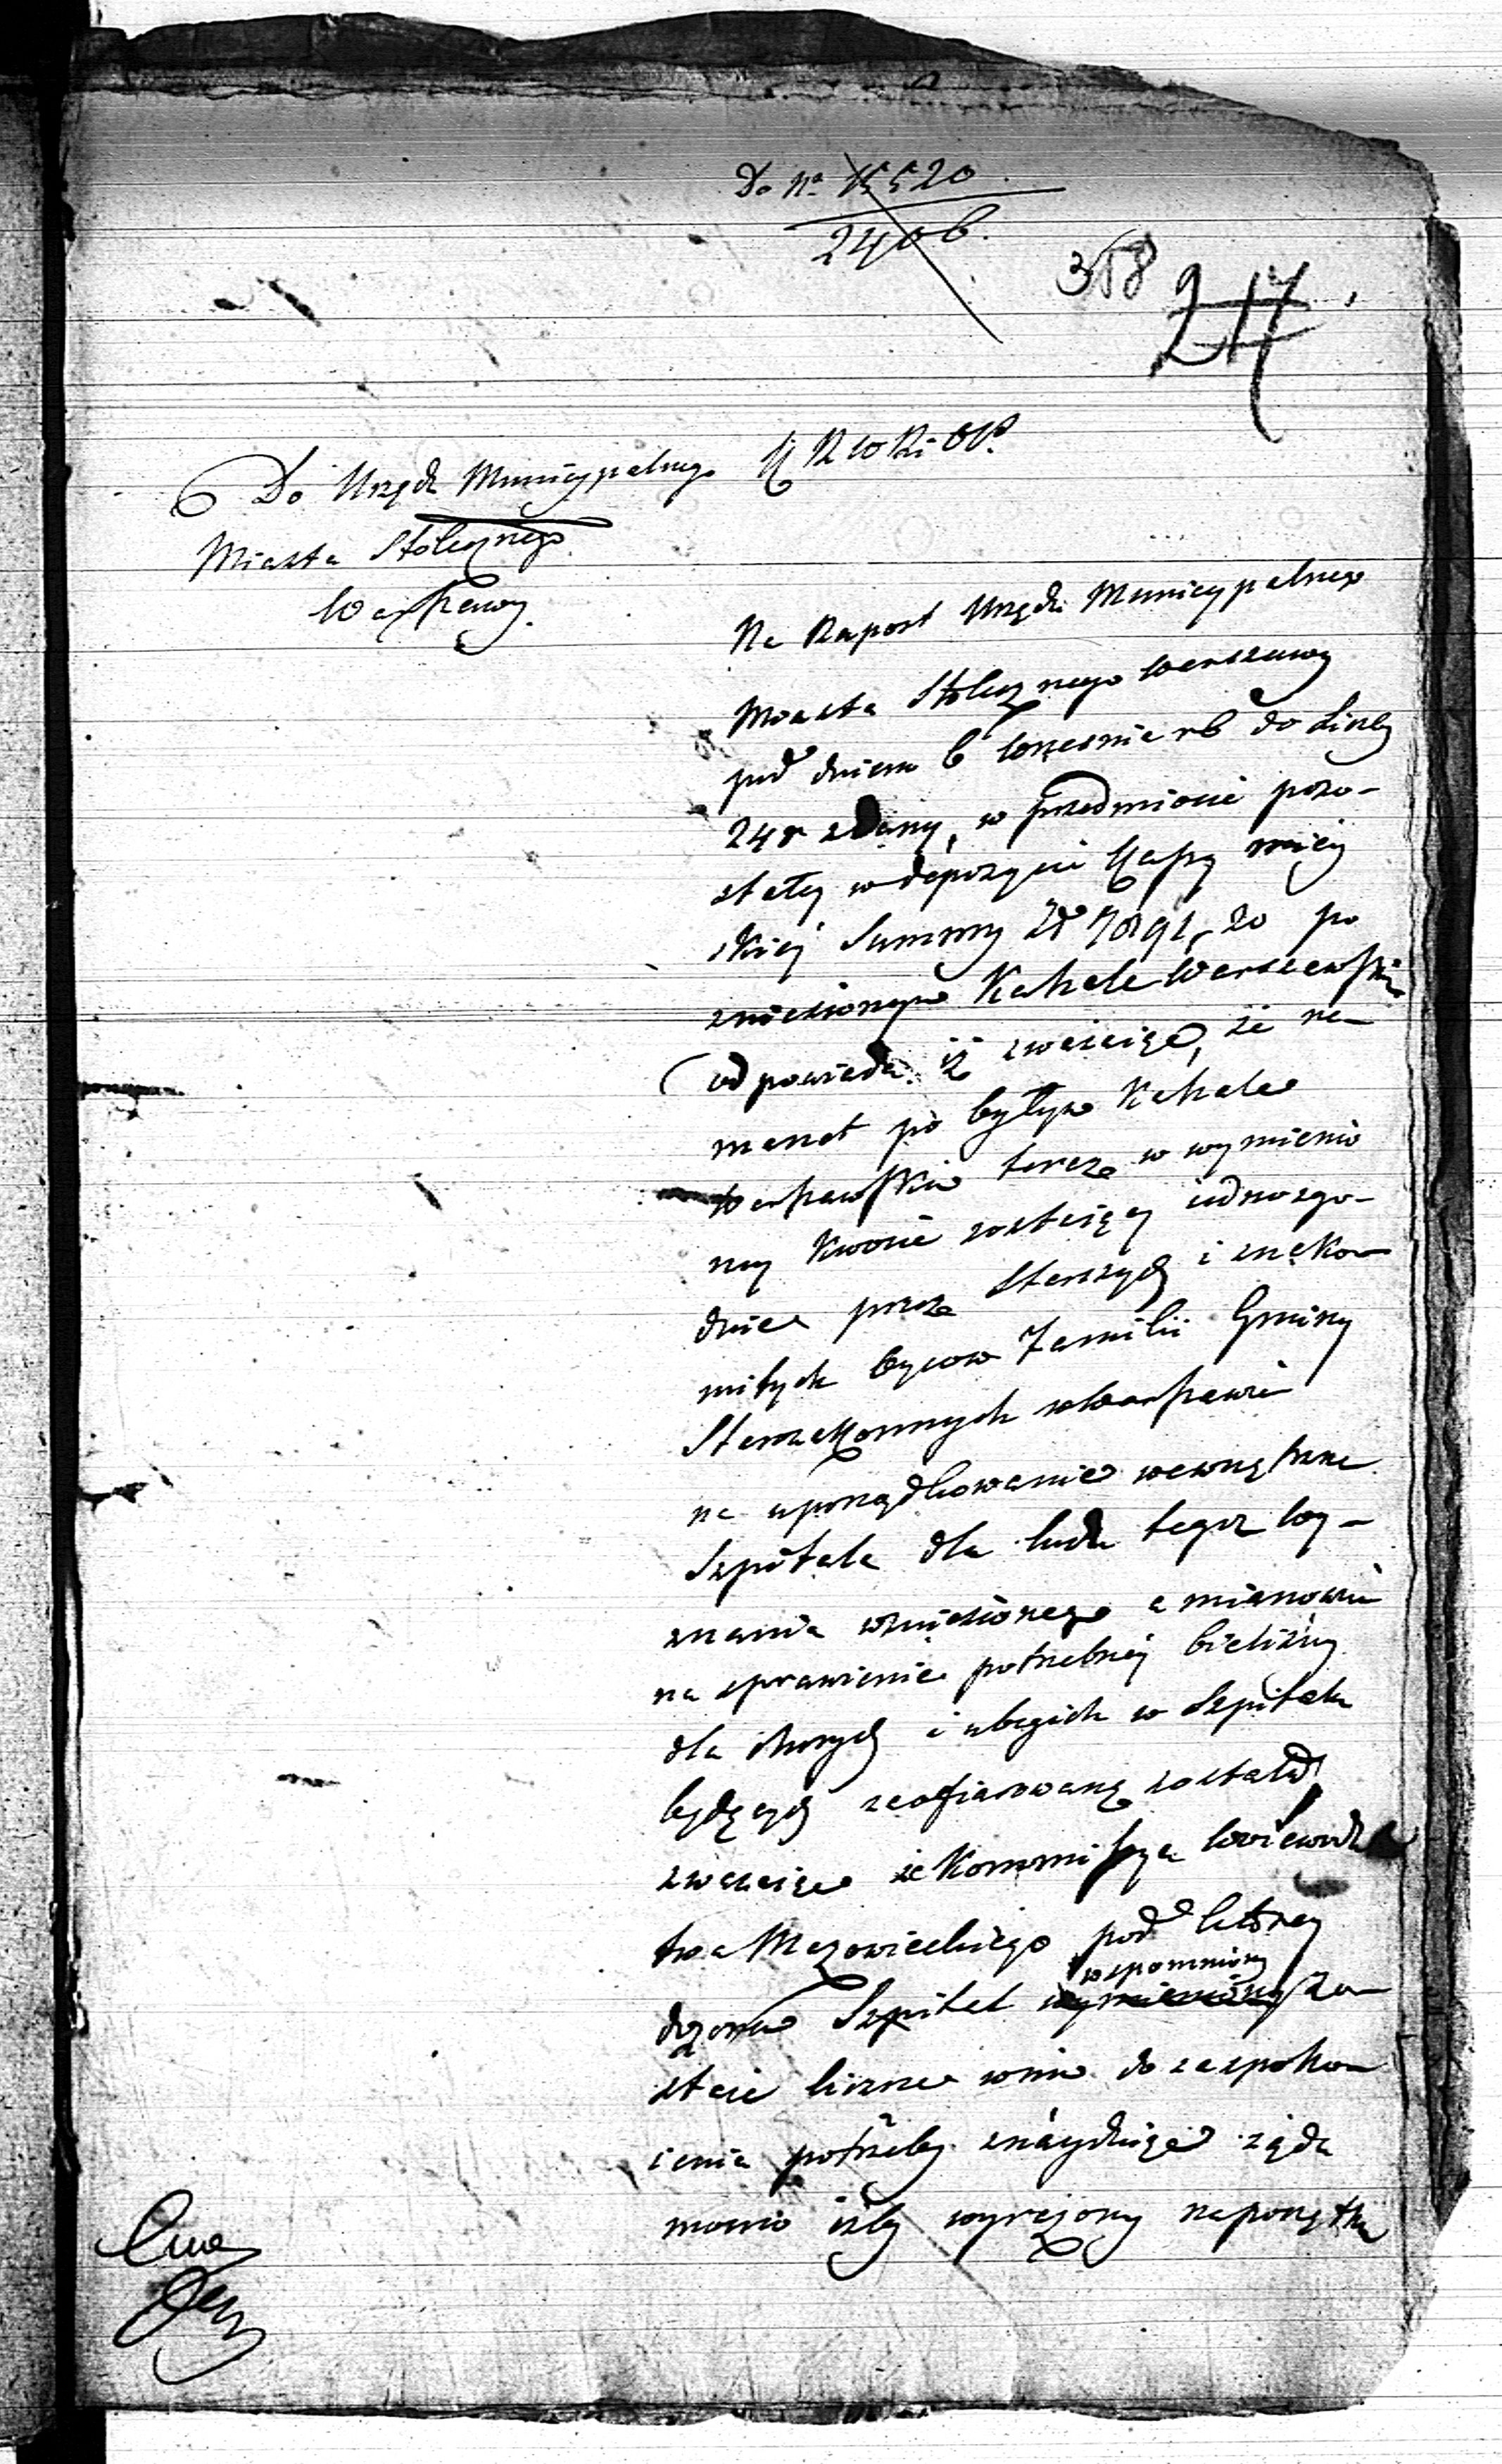 Do No 15520.
2406.
358
217
Do Urzędu Municypalnego
Miasta Stołecznego
Warszawy.
Na Raport Urzędu Municypalnego
Miasta Stołecznego Warszawy
pod dniem 6 Września rb do Liczby
zdany, w przedmiocie pozo-
stałey w depozycie Kassy miey
skiej Summy Zł 20 po
zniesionym Kahale Warszawskim
odpowiada iż zważając, że re-
manet po byłym Kahale
Warszawskim teraz w wymienio
ney kwocie zostaiący iednozgo-
dnie przez Starszych i znako-
mitych oyców Familii Gminy
Starozakonnych w Warszawie
na uporządkowanie wewnętrzne
Szpitala dla ludu tegoż wy-
znania wzniesionego a mianowicie
na sprawienie potrzebnej bielizny
dla chorych i ubogich w Szpitalu
będących zaofiarowany został,
zważaiąc że Kommissya Woiewódz
twa Mazowieckiego pod którey
dozorem Szpital wymieniony wspomniony zo-
staie liczne w nim do zaspoko-
ienia potrzeby znayduiąc żąda
mocno iżby wyrażony na początku